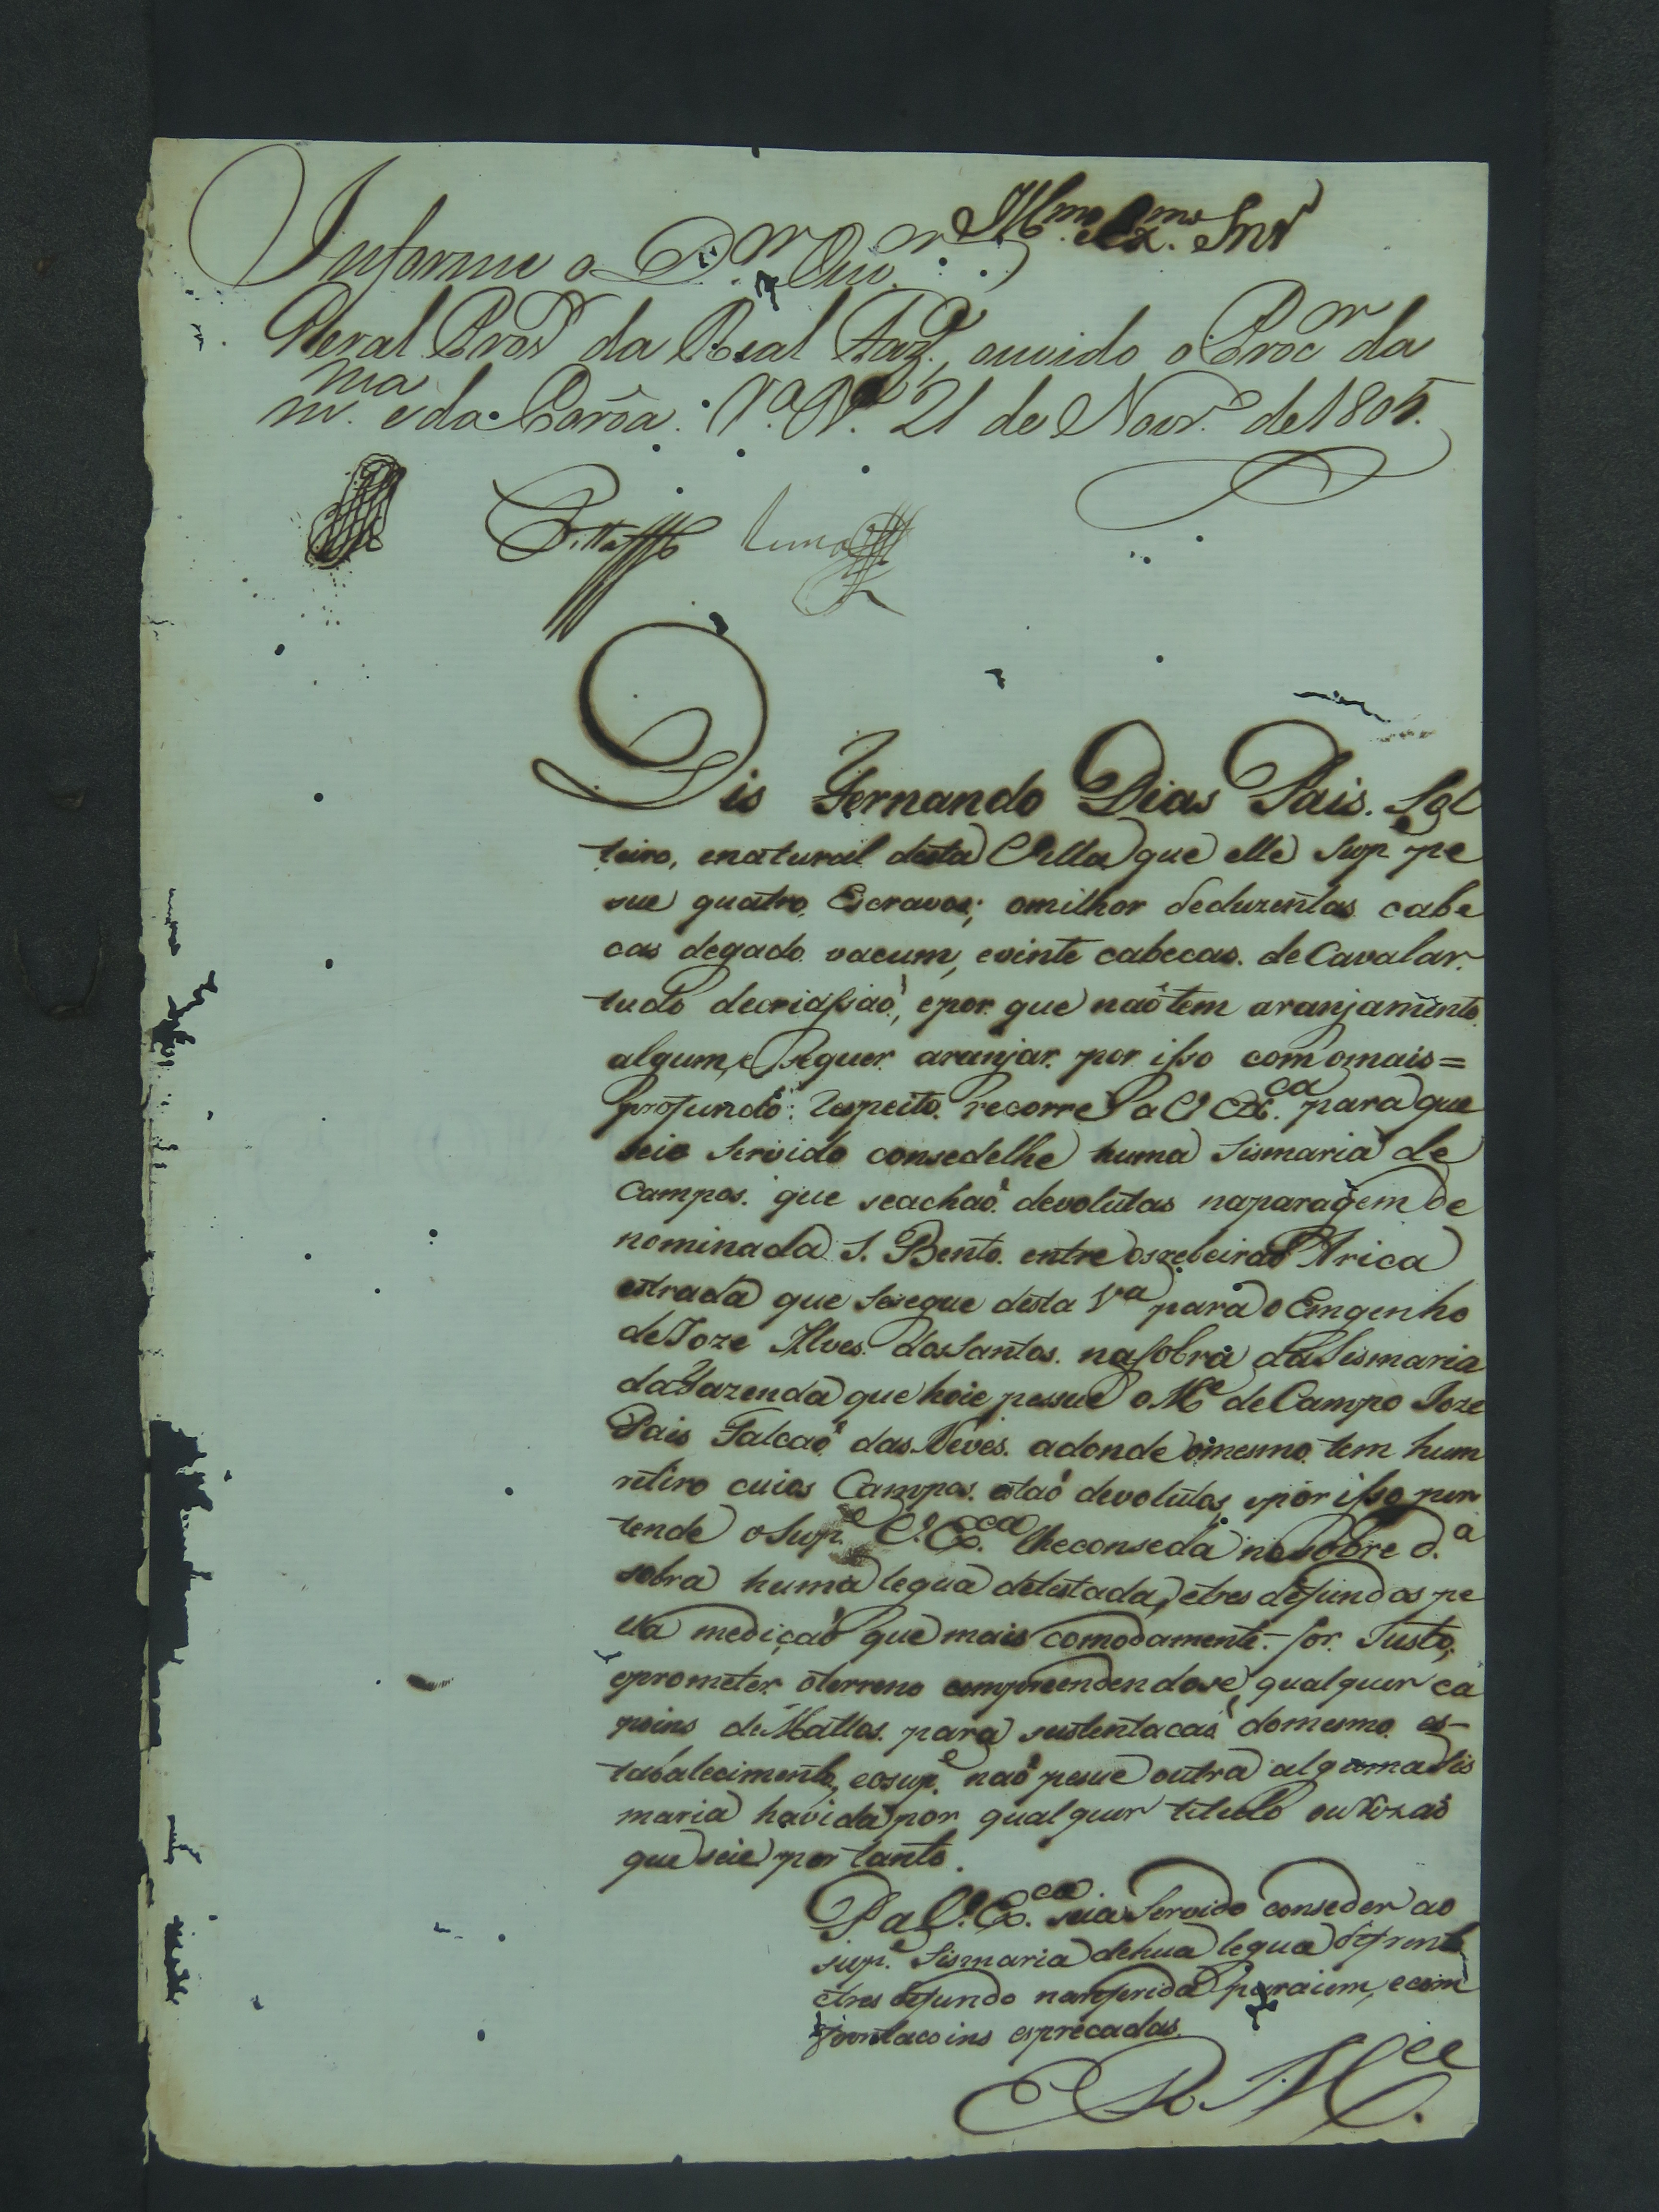 Illmo. Exmo. Snr
Informe o Dr. Ouvr.
Geral Provr da Real Fazda., ouvido o Procr da
mma. e da Corôa. Va. Va. 21 de Novro. de 1805.
Dis Fernando Dias Pais. Sol
teiro, enatural desta Villa que elle Sup pe
sue quatro Escravos; omilhor deduzentas cabe
cas degado vacum, evinte cabecas. de Cavalar.
tudo decriassaõ, epor que naõ tem aranjamento
algum, e sequer aranjar por isso com omais=
profundo respeito recorre a V Exca. para que
seie Servido consedelhe huma Sismaria de
Campos. que seachaõ devolutas naparagem de
nominada S. Bento. entre osrebeiraõ Arica
estrada que Sesegue desta Va para o Emgenho
deJoze Alves dosSantos. nasobra daSismaria
daFazenda que hoie pessue o Me deCampo Joze
Pais Falcaõ das Neves. adonde omesmo tem hum
retiro cuios Campos. estaõ devolutos, epor isso per
tende oSupe. V. Exca. lheconseda nosobre d.a
sobra huma legua detestada, etres defundos pe
lla mediçaõ que mais comodamente for Justo,
eprometer oterreno compreendendose, qualquer ca
poins deMattos. para sustentacaõ domesmo es-
tabalecimento, eosupe. naõ pesue outra algumaSis
maria havida por qualquer titulo ouRozaõ
que seie por tanto.
P a V. Exca. seia Servido conseder ao
supe. Sismaria dehua legua defrente
etres defundo nareferida paraiem, ecom
frontacoins esprecadas.
E R. Mce.